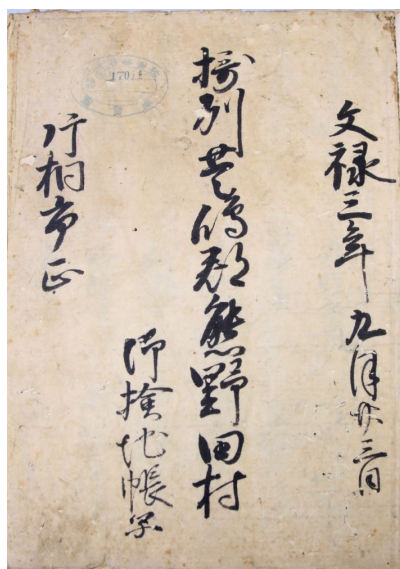 文禄三年 九月廿三日
摂州豊嶋郡熊野田村
御検地帳写
片桐市正